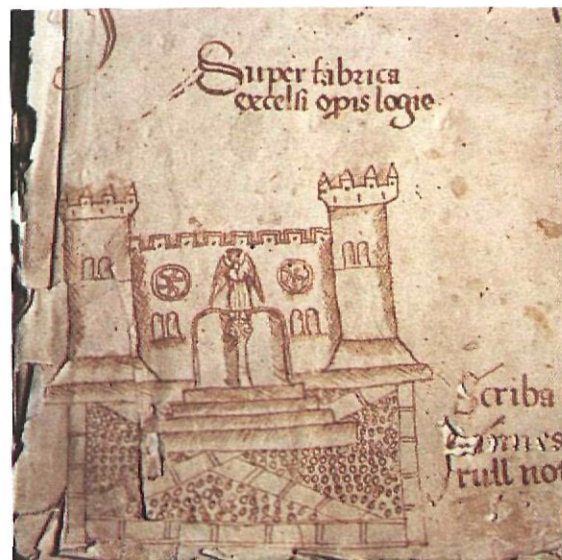 Super fabrica
excelsi opis logie
Scriba
rull not